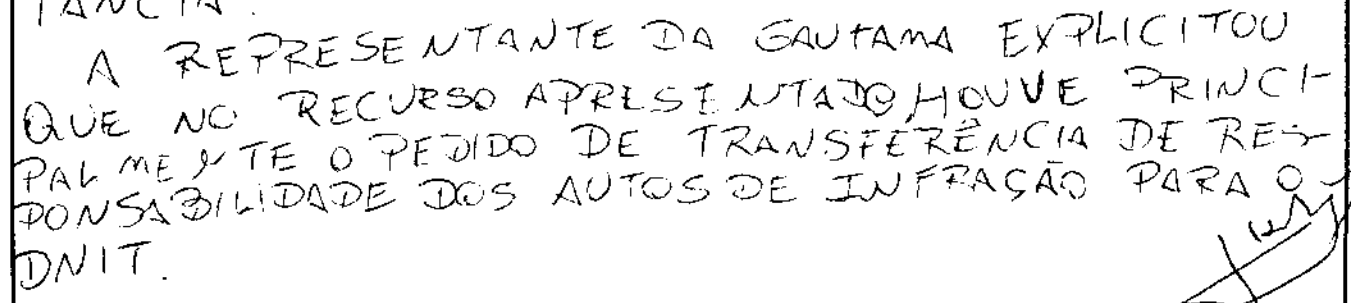 TÂNCIA.
A REPRESENTANTE DA GAUTAMA EXPLICITOU
QUE NO RECURSO APRESENTADO, HOUVE PRINCI-
PALMENTE O PEDIDO DE TRANSFERÊNCIA DE RES-
PONSABILIDADE DOS AUTOS DE INFRAÇÃO PARA O
DNIT.